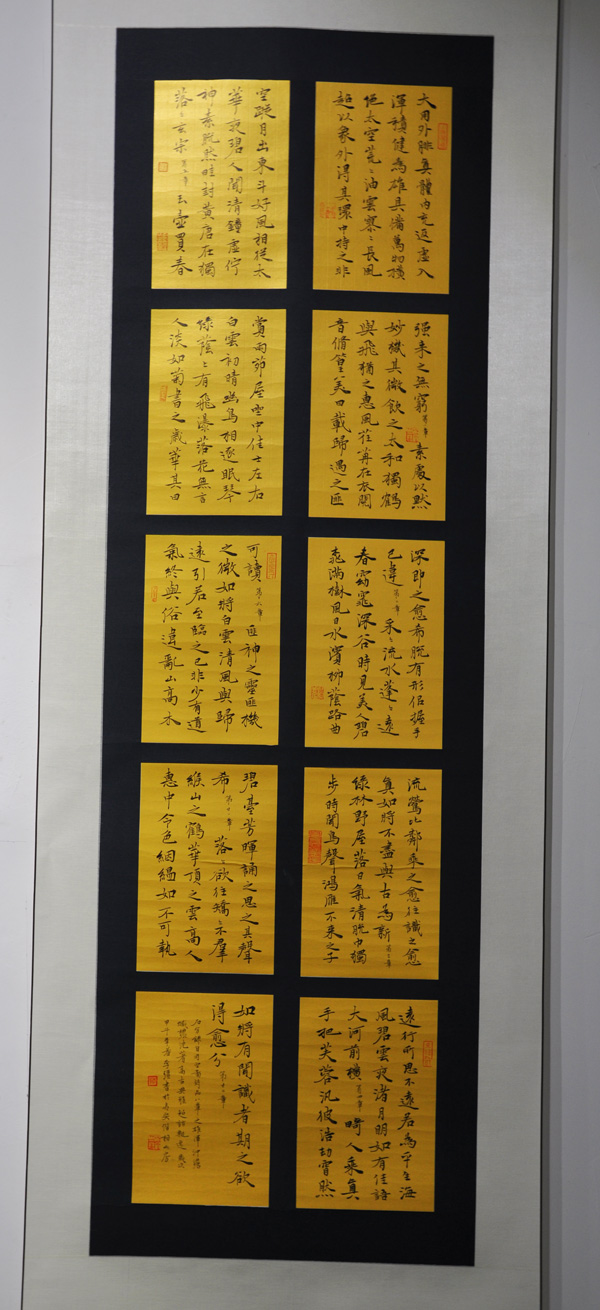 大用外腓真體內充返虛入
渾積健為雄具備萬物橫
絕太空荒〻油雲寥〻長風
超以象外得其環中持之非
强来之無窮 第一章 素處以默
妙機其微飲之太和獨鶴
與飛猶之惠風荏苒在衣閱
音脩篁美曰載歸遇之匪
深即之愈希脫有形似握手
已違 第二章 采〻流水蓬〻遠
春窈窕深谷時見美人碧
桃滿樹風日水濱柳蔭路曲
流鶯比鄰乘之愈往識之愈
真如將不盡與古為新 第三章
綠林野屋落日氣清脫巾獨
步時聞鳥聲鴻雁不来之子
遠行所思不遠若為平生海
風碧雲夜渚月明如有佳語
大河前橫 第四章 畸人乘真
手把芙蓉汎彼浩劫窅然
空蹤月出東斗好風相從太
華夜碧人聞清鐘虛佇
神素脫然畦封黃唐在獨
落〻玄宗 第五章 玉壺買春
賞雨茆屋空中佳士左右
白雲初晴幽鳥相逐眠琴
綠蔭〻有飛瀑落花無言
人淡如菊書之歲華其曰
可讀 第六章 匪神之靈匪機
之微如將白雲清風與歸
遠引若至臨之已非少有道
氣終與俗違亂山高木
碧臺芳暉誦之思之其聲
希 第十章 落〻欲往矯〻不羣
緱山之鶴華頂之雲高人
惠中令色絪縕如不可執
如將有聞識者期之欲
得愈分 第十一章